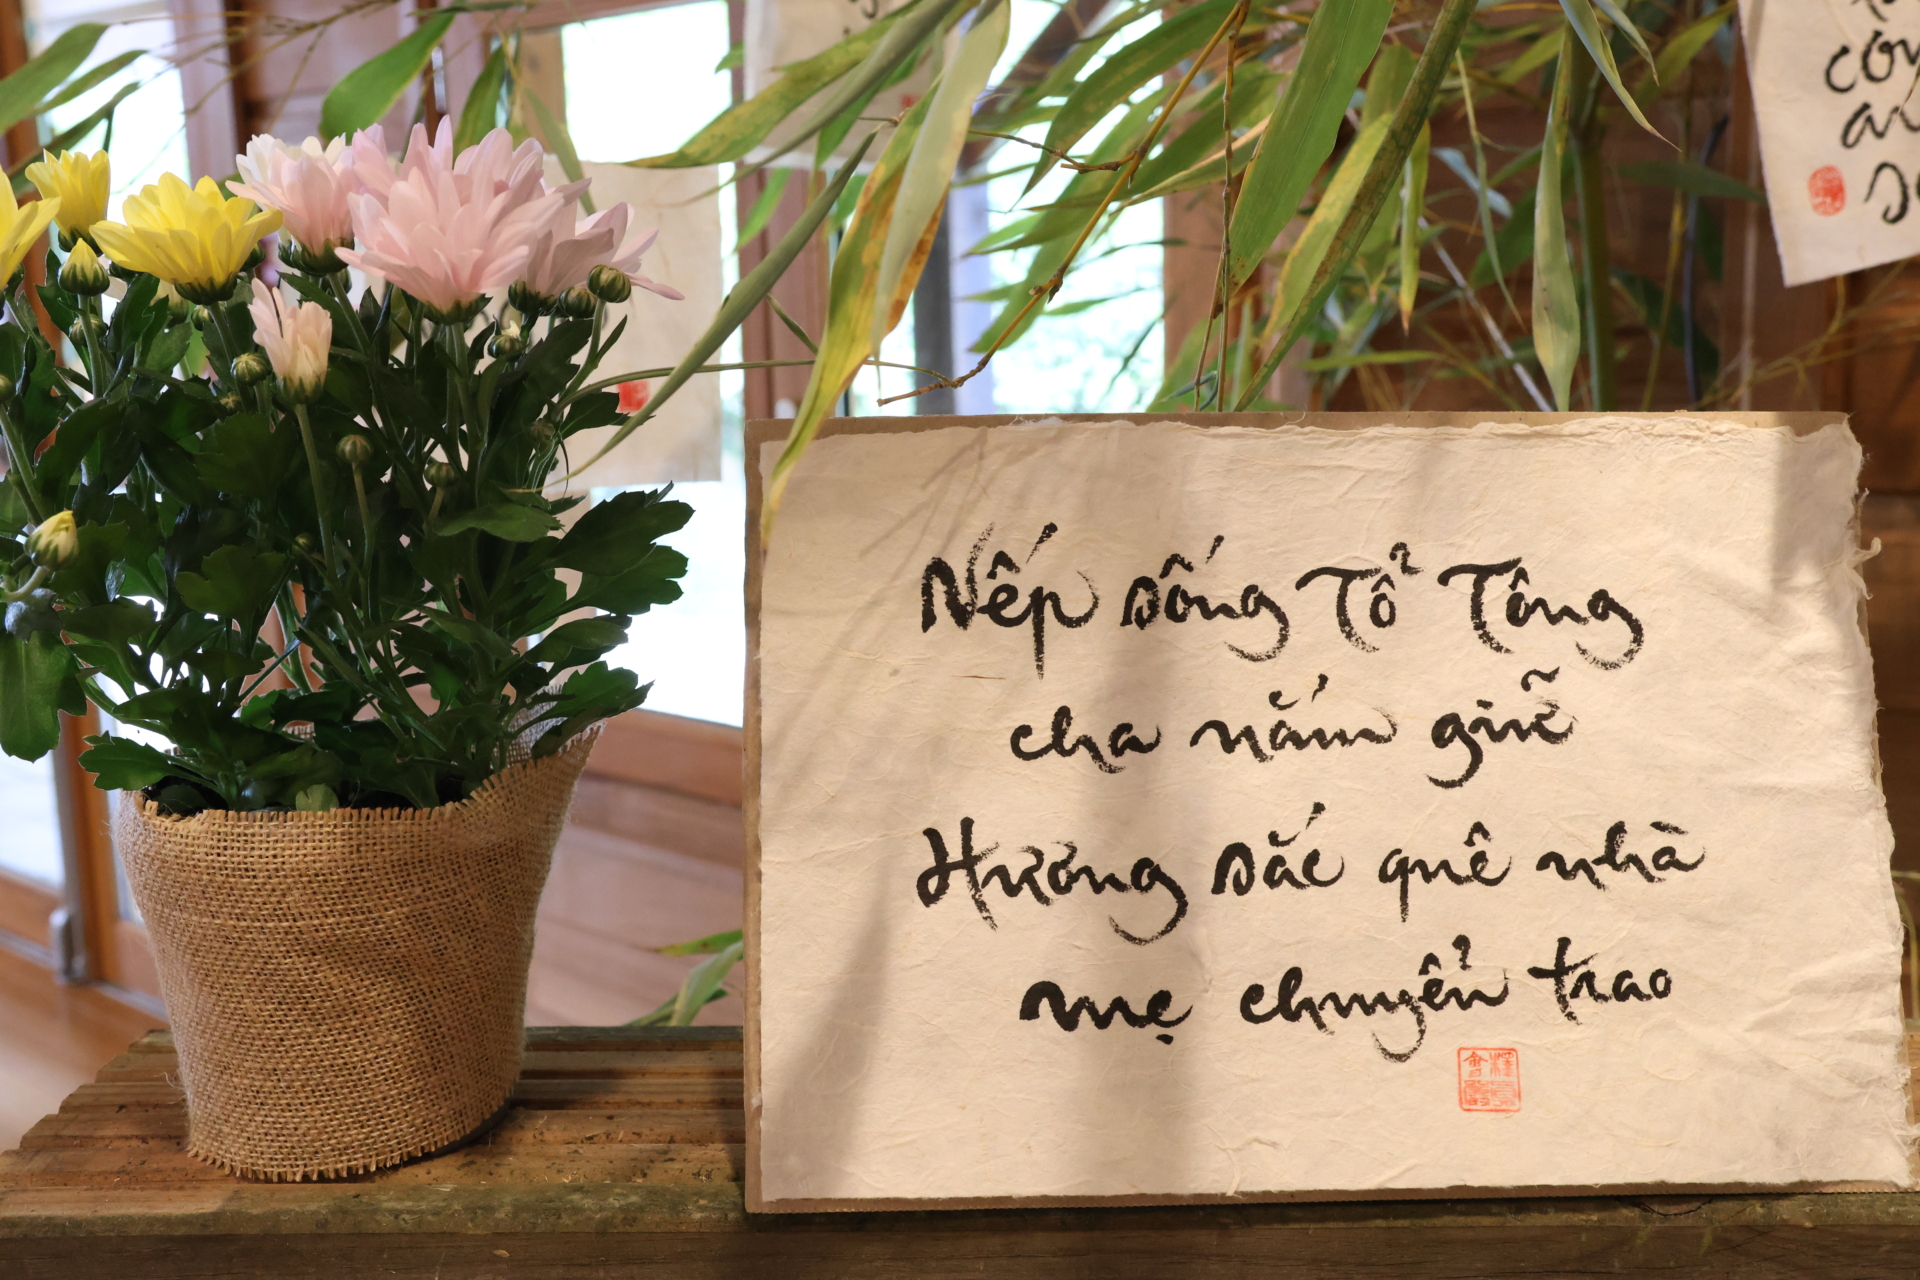 Nếp sống Tổ Tông
cha nắm giữ
Hương sắc quê nhà
mẹ chuyển trao